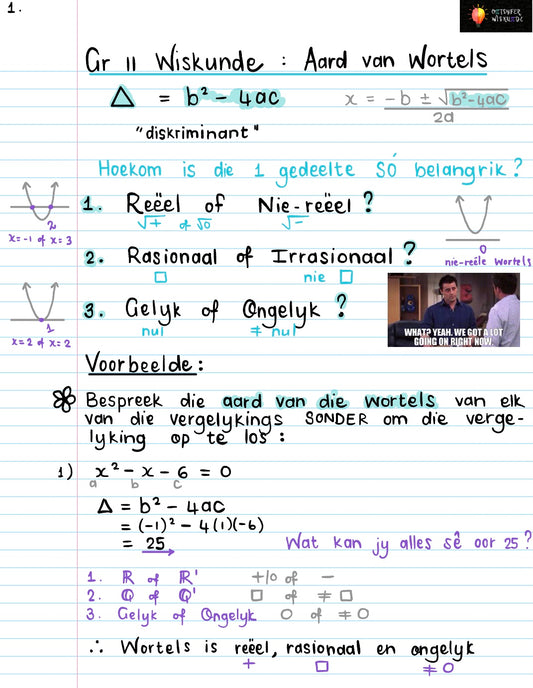 1.
ONTSYFER
WISKUNDE
Gr 11 Wiskunde : Aard van Wortels
Δ = b² - 4ac
x = -b ± √b²-4ac
2a
"diskriminant"
Hoekom is die 1 gedeelte SÓ belangrik?
1. Reëel of Nie-reëel ?
√+ of √0 √-
2
x=-1 of x=3
0
nie-reële wortels
2. Rasionaal of Irrasionaal ?
□ nie □
3. Gelyk of Ongelyk ?
nul ≠ nul
1
x=2 of x=2
WHAT? YEAH. WE GOT A LOT
GOING ON RIGHT NOW.
Voorbeelde:
Bespreek die aard van die wortels van elk
van die vergelykings SONDER om die verge-
lyking op te los :
1) x² - x - 6 = 0
a b c
Δ = b² - 4ac
= (-1)² - 4(1)(-6)
= 25
Wat kan jy alles sê oor 25?
1. ℝ of ℝ' +/0 of -
2. ℚ of ℚ' □ of ≠ □
3. Gelyk of Ongelyk 0 of ≠ 0
∴ Wortels is reëel, rasionaal en ongelyk
+ □ ≠ 0